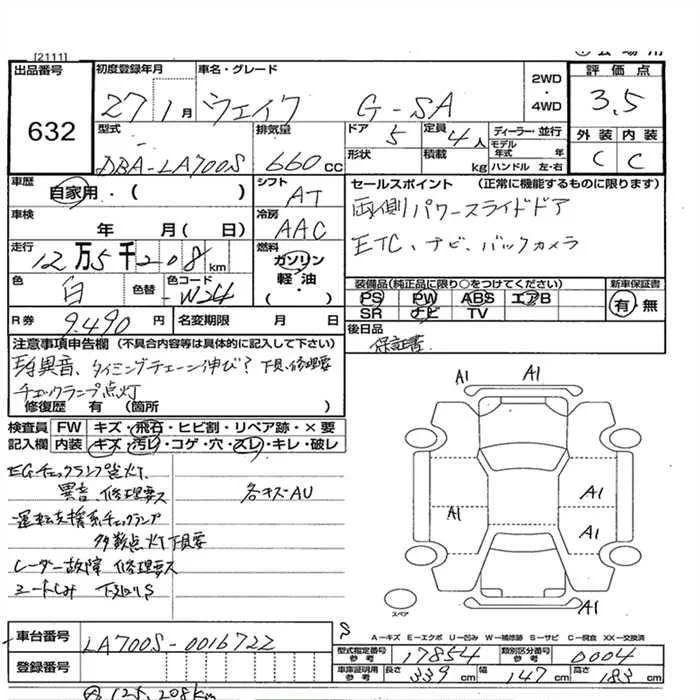 [2111]
出品番号
632
初度登録年月 車名・グレード
27 1月 ウェイク G-SA
2WD
・
4WD
評価点
3.5
外装 内装
C C
型式
DBA-LA700S
排気量
660cc
ドア 5
定員 4人
形状
積載 kg
ディーラー・並行
モデル年式 年
ハンドル 左・右
車歴
自家用・( )
シフト
AT
車検
年 月(日)
冷房
AAC
走行
12万5千208km
燃料
ガソリン
軽油
・( )
色
白
色替
色コード
W24
R券
9,490円
名変期限 月 日
セールスポイント (正常に機能するものに限ります)
両側パワースライドドア
ETC、ナビ、バックカメラ
装備品(純正品に限り○をつけてください) 新車保証書
PS PW ABS エアB
SR ナビ TV
有・無
後日品
保証書
注意事項申告欄 (不具合内容等は具体的に記入して下さい)
異音、タイミングチェーン伸び? 下見、修理要
チェックランプ点灯
修復歴 有 (箇所 )
検査員記入欄
FW キズ・飛石・ヒビ割・リペア跡・×要
内装 キズ・汚レ・コゲ・穴・スレ・キレ・破レ
EGチェックランプ点灯
異音、修理要ス
各キズAU
運転支援系チェックランプ
多数点灯 下見要
レーダー故障 修理要ス
シートしみ
A1 A1
A1
A1
A1
A1
スペア
A―キズ E―エクボ U―凹み W―補修跡 S―サビ C―腐食 XX―交換済
車台番号
LA700S-0016722
登録番号
型式指定番号参考 17854
類別区分番号参考 0004
車庫証明用参考 長さ 339cm 幅 147cm 高さ 183cm
125,208km